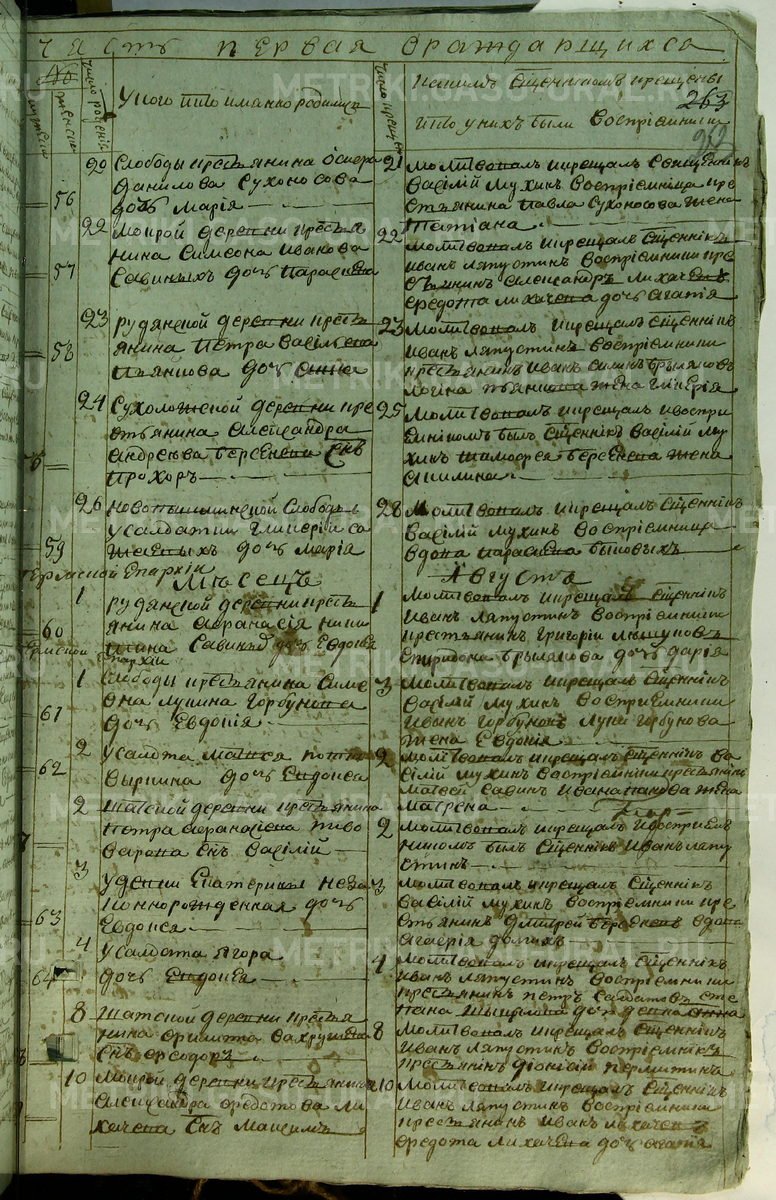 часть первая о раждающихся
№
мужеска
женска
число рождении
У кого кто имянно родился
число крещения
Кемъ Сщенникомъ крещены
и кто у нихъ были Воспріемники
263
20
Слободы крестьянина
Данилова Сухоносова
56
дочь Марія
21
Молитвовалъ и крещалъ Священникъ
Василій Мухинъ Воспріемница кре
стьянина Павла Сухоносова жена
Татіана
22
Мокрой деревни крестья
нина Симеона Иванова
57
Савиныхъ дочь Параскева
22
Молитвовалъ и крещалъ Сщенникъ
Иванъ Ляпустинъ Воспріемники кре
стьянинъ Александръ Лихачевъ
Федота Лихачева дочь Агапія
23
Рудянской деревни кресть
янина Петра Васильева
58
Пьянкова дочь Анна
23
Молитвовалъ и крещалъ Сщенникъ
Иванъ Ляпустинъ Воспріемники
крестьянинъ Иванъ Брылясовъ
Логина Пьянкова жена Гликерія
24
Сухоложской деревни кре
стьянина Александра
Андреева Берсенева Снъ
Прохоръ
25
Молитвовалъ и крещалъ и воспри
емникомъ былъ Сщенникъ Василій Му
хинъ Тимофея Берсенева жена
Акилина
26
Новопышминской Слободы
у салдатки Гликеріи Са
59
жаевыхъ дочь Марія
28
Молитвовалъ и крещалъ Сщенникъ
Василій Мухинъ Воспріемница
вдова Параскева Быковыхъ
Пермской Епархіи
Месецъ
Августа
1
Рудянской деревни кресть
янина Афанасія Ники
60
тина Савиныхъ дочь Евдокея
1
Молитвовалъ и крещалъ Сщенникъ
Иванъ Ляпустинъ Воспріемники
крестьянинъ Григорій
Спиридона Брылякова дочь Дарія
Епархіи
1
Слободы крестьянина Симе
она Лукина Горбунова
61
дочь Евдокія
3
Молитвовалъ и крещалъ Сщенникъ
Василій Мухинъ Воспріемники
Иванъ Горбуновъ Луки Горбунова
жена Евдокія
2
У салдата Матвея
62
Выркина дочь Евдокея
2
Молитвовалъ и крещалъ Сщенникъ Ва
силій Мухинъ Воспріемники крестьянинъ
Матвей Савинъ Ивана Панова жена
Матрена
2
Шатской деревни крестьянина
Петра Афанасіева Пиво
варова Снъ Василій
2
Молитвовалъ и крещалъ и Воспріем
никомъ былъ Сщенникъ Иванъ Ляпу
стинъ
3
У девки Екатерины неза
63
коннорожденная дочь
Евдокея
3
Молитвовалъ и крещалъ Сщенникъ
Василій Мухинъ Воспріемники кре
стьянинъ Дмитрей Берсеневъ вдова
Агафія Долгихъ
4
У салдата Егора
64
дочь Евдокея
4
Молитвовалъ и крещалъ Сщенникъ
Иванъ Ляпустинъ Воспріемники
крестьянинъ Петръ Салдатовъ Сте
пана дочь девка Анна
8
Шатской деревни крестья
нина Филипа Вахрушева
Снъ Феодоръ
8
Молитвовалъ и крещалъ Сщенникъ
Иванъ Ляпустинъ Воспріемникъ
крестьянинъ Діонисій Пермитинъ
10
Мокрой деревни крестьянина
Александра Федотова Ли
хачева Снъ Максимъ
10
Молитвовалъ и крещалъ Сщенникъ
Иванъ Ляпустинъ Воспріемники
крестьянинъ Иванъ Лихачевъ
Федота Лихачева дочь Агапія